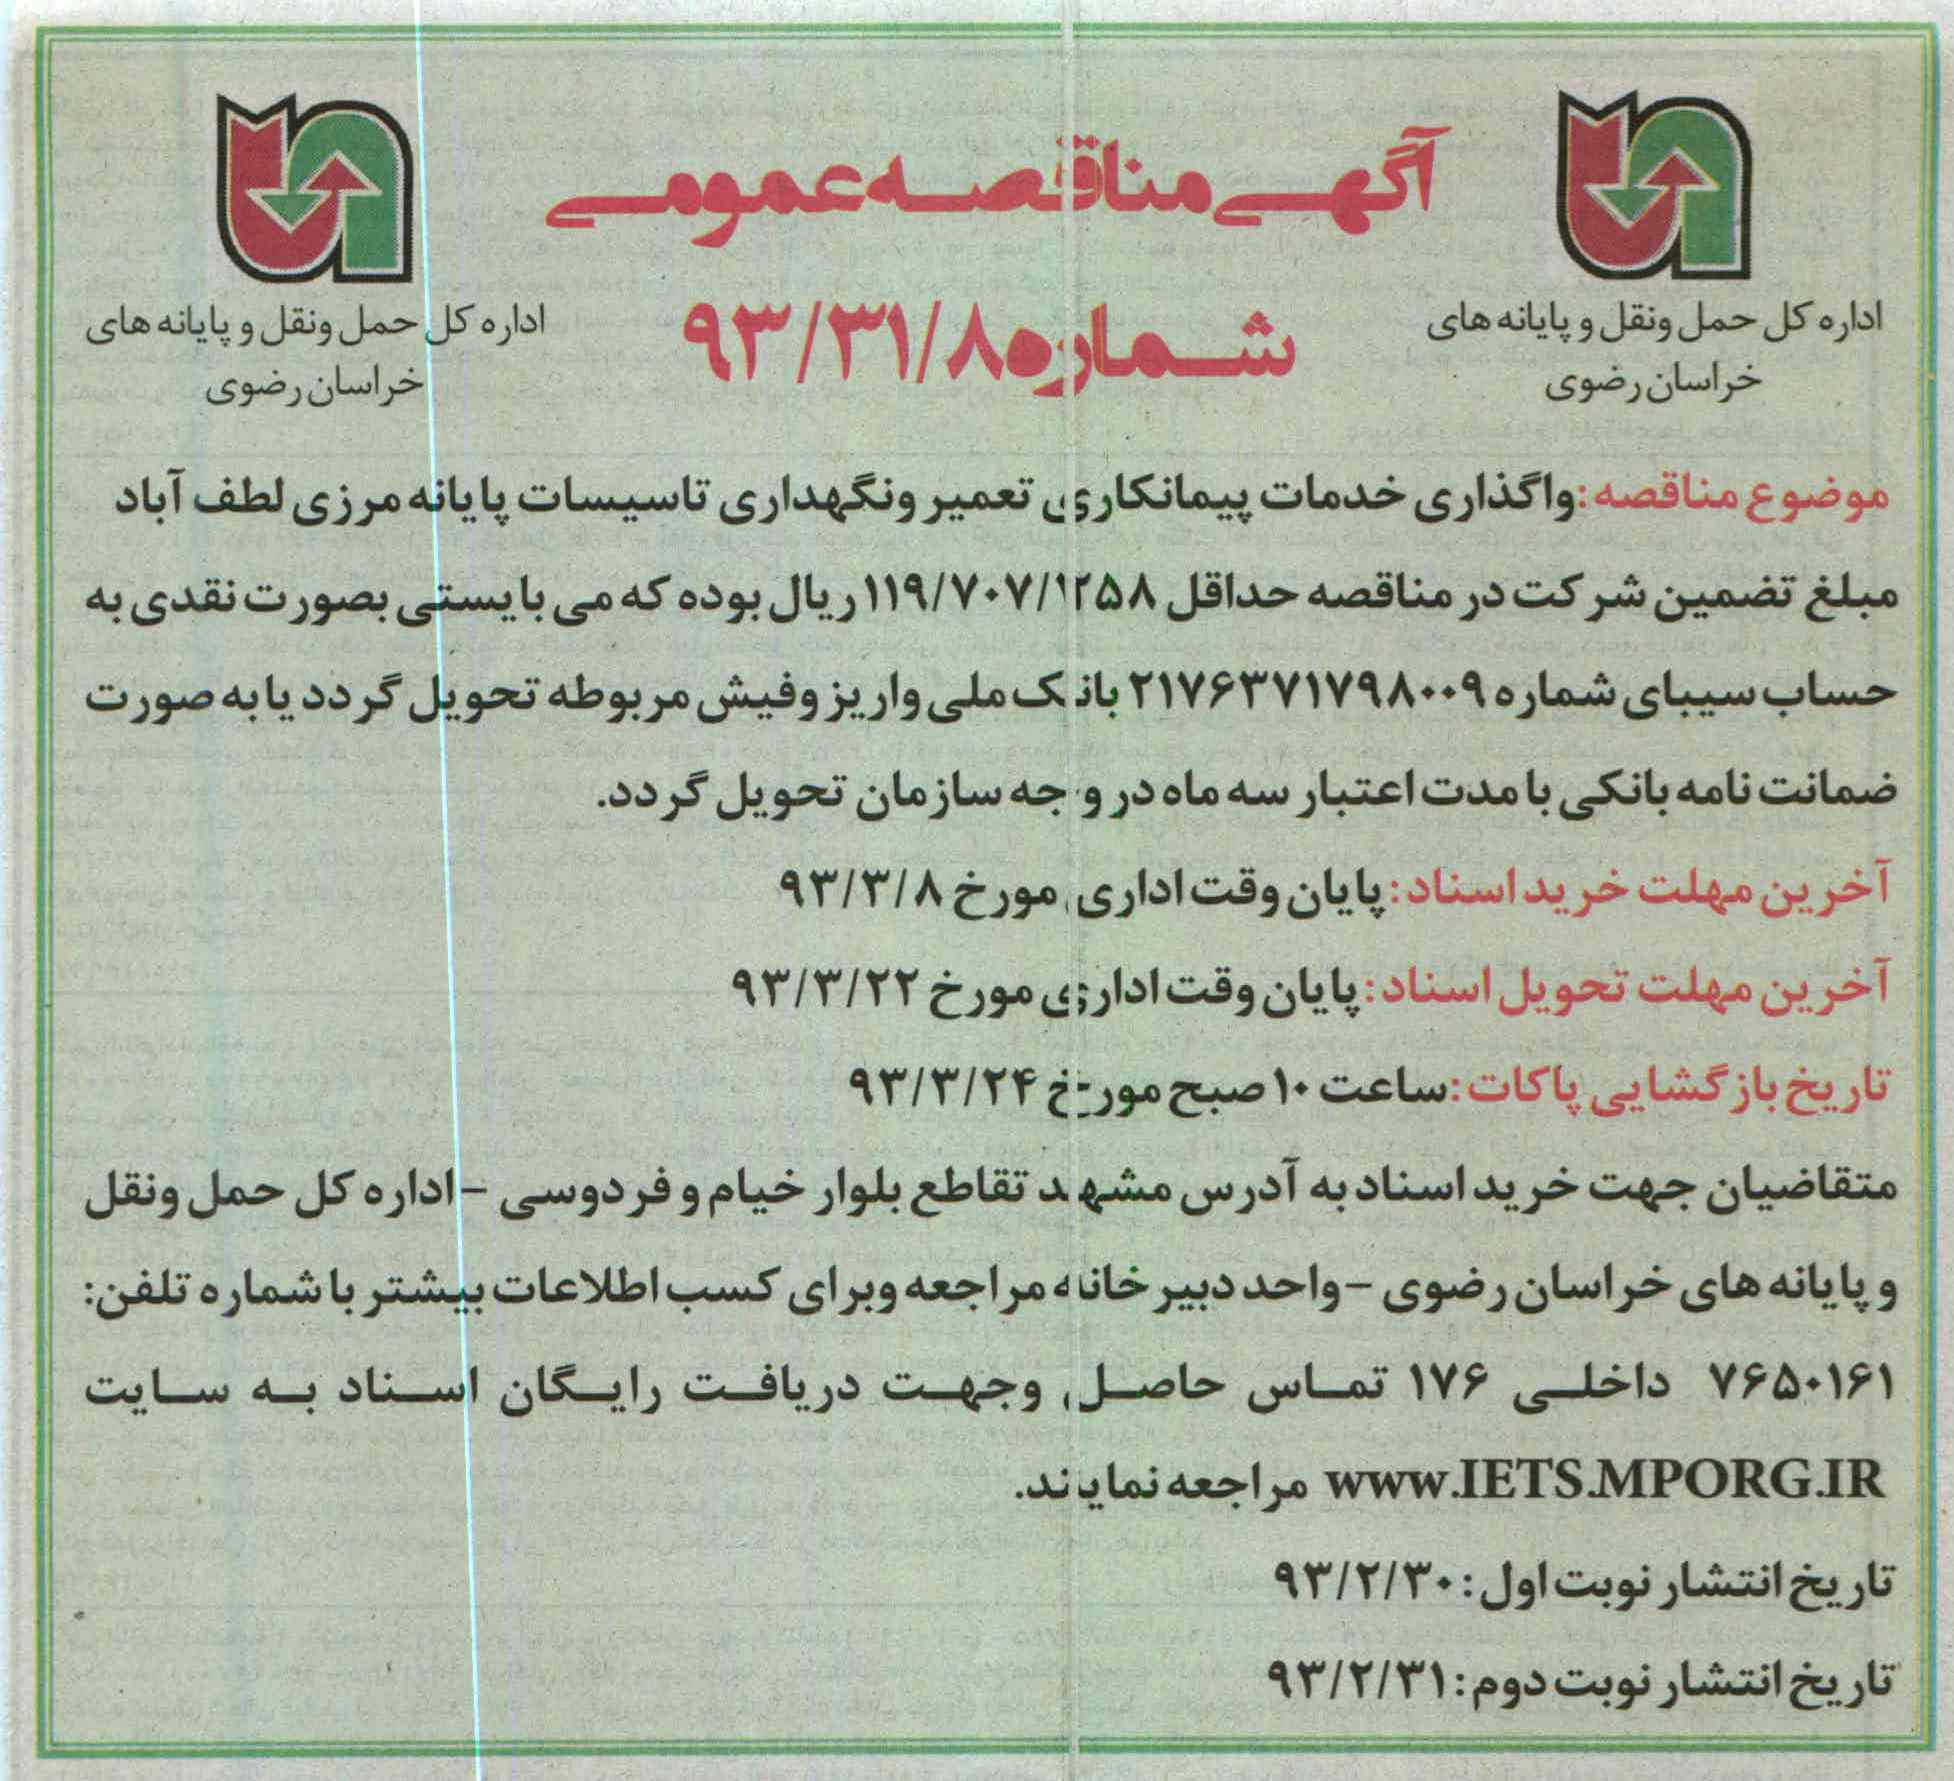 آگهی مناقصه عمومی
شماره ۹۳/۳۱/۸
اداره کل حمل ونقل و پایانه های
خراسان رضوی
اداره کل حمل ونقل و پایانه های
خراسان رضوی
موضوع مناقصه:واگذاری خدمات پیمانکاری تعمیر ونگهداری تاسیسات پایانه مرزی لطف آباد
مبلغ تضمین شرکت در مناقصه حداقل ریال بوده که می بایستی بصورت نقدی به
حساب سیبای شماره ۲۱۷۶۳۷۱۷۹۸۰۰۹ بانک ملی واریز وفیش مربوطه تحویل گردد یا به صورت
ضمانت نامه بانکی با مدت اعتبار سه ماه در وجه سازمان تحویل گردد.
آخرین مهلت خرید اسناد: پایان وقت اداری مورخ ۹۳/۳/۸
آخرین مهلت تحویل اسناد: پایان وقت اداری مورخ ۹۳/۳/۲۲
تاریخ بازگشایی پاکات: ساعت ۱۰ صبح مورخ ۹۳/۳/۲۴
متقاضیان جهت خرید اسناد به آدرس مشهد تقاطع بلوار خیام و فردوسی –اداره کل حمل ونقل
و پایانه های خراسان رضوی –واحد دبیرخانه مراجعه وبرای کسب اطلاعات بیشتر با شماره تلفن:
۷۶۵۰۱۶۱ داخلی ۱۷۶ تماس حاصل وجهت دریافت رایگان اسناد به سایت
www.IETS.MPORG.IR مراجعه نمایند.
تاریخ انتشار نوبت اول: ۹۳/۲/۳۰
تاریخ انتشار نوبت دوم: ۹۳/۲/۳۱